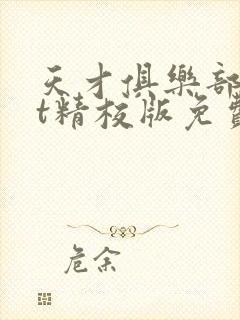 天才俱樂部
t精校版免費
危余